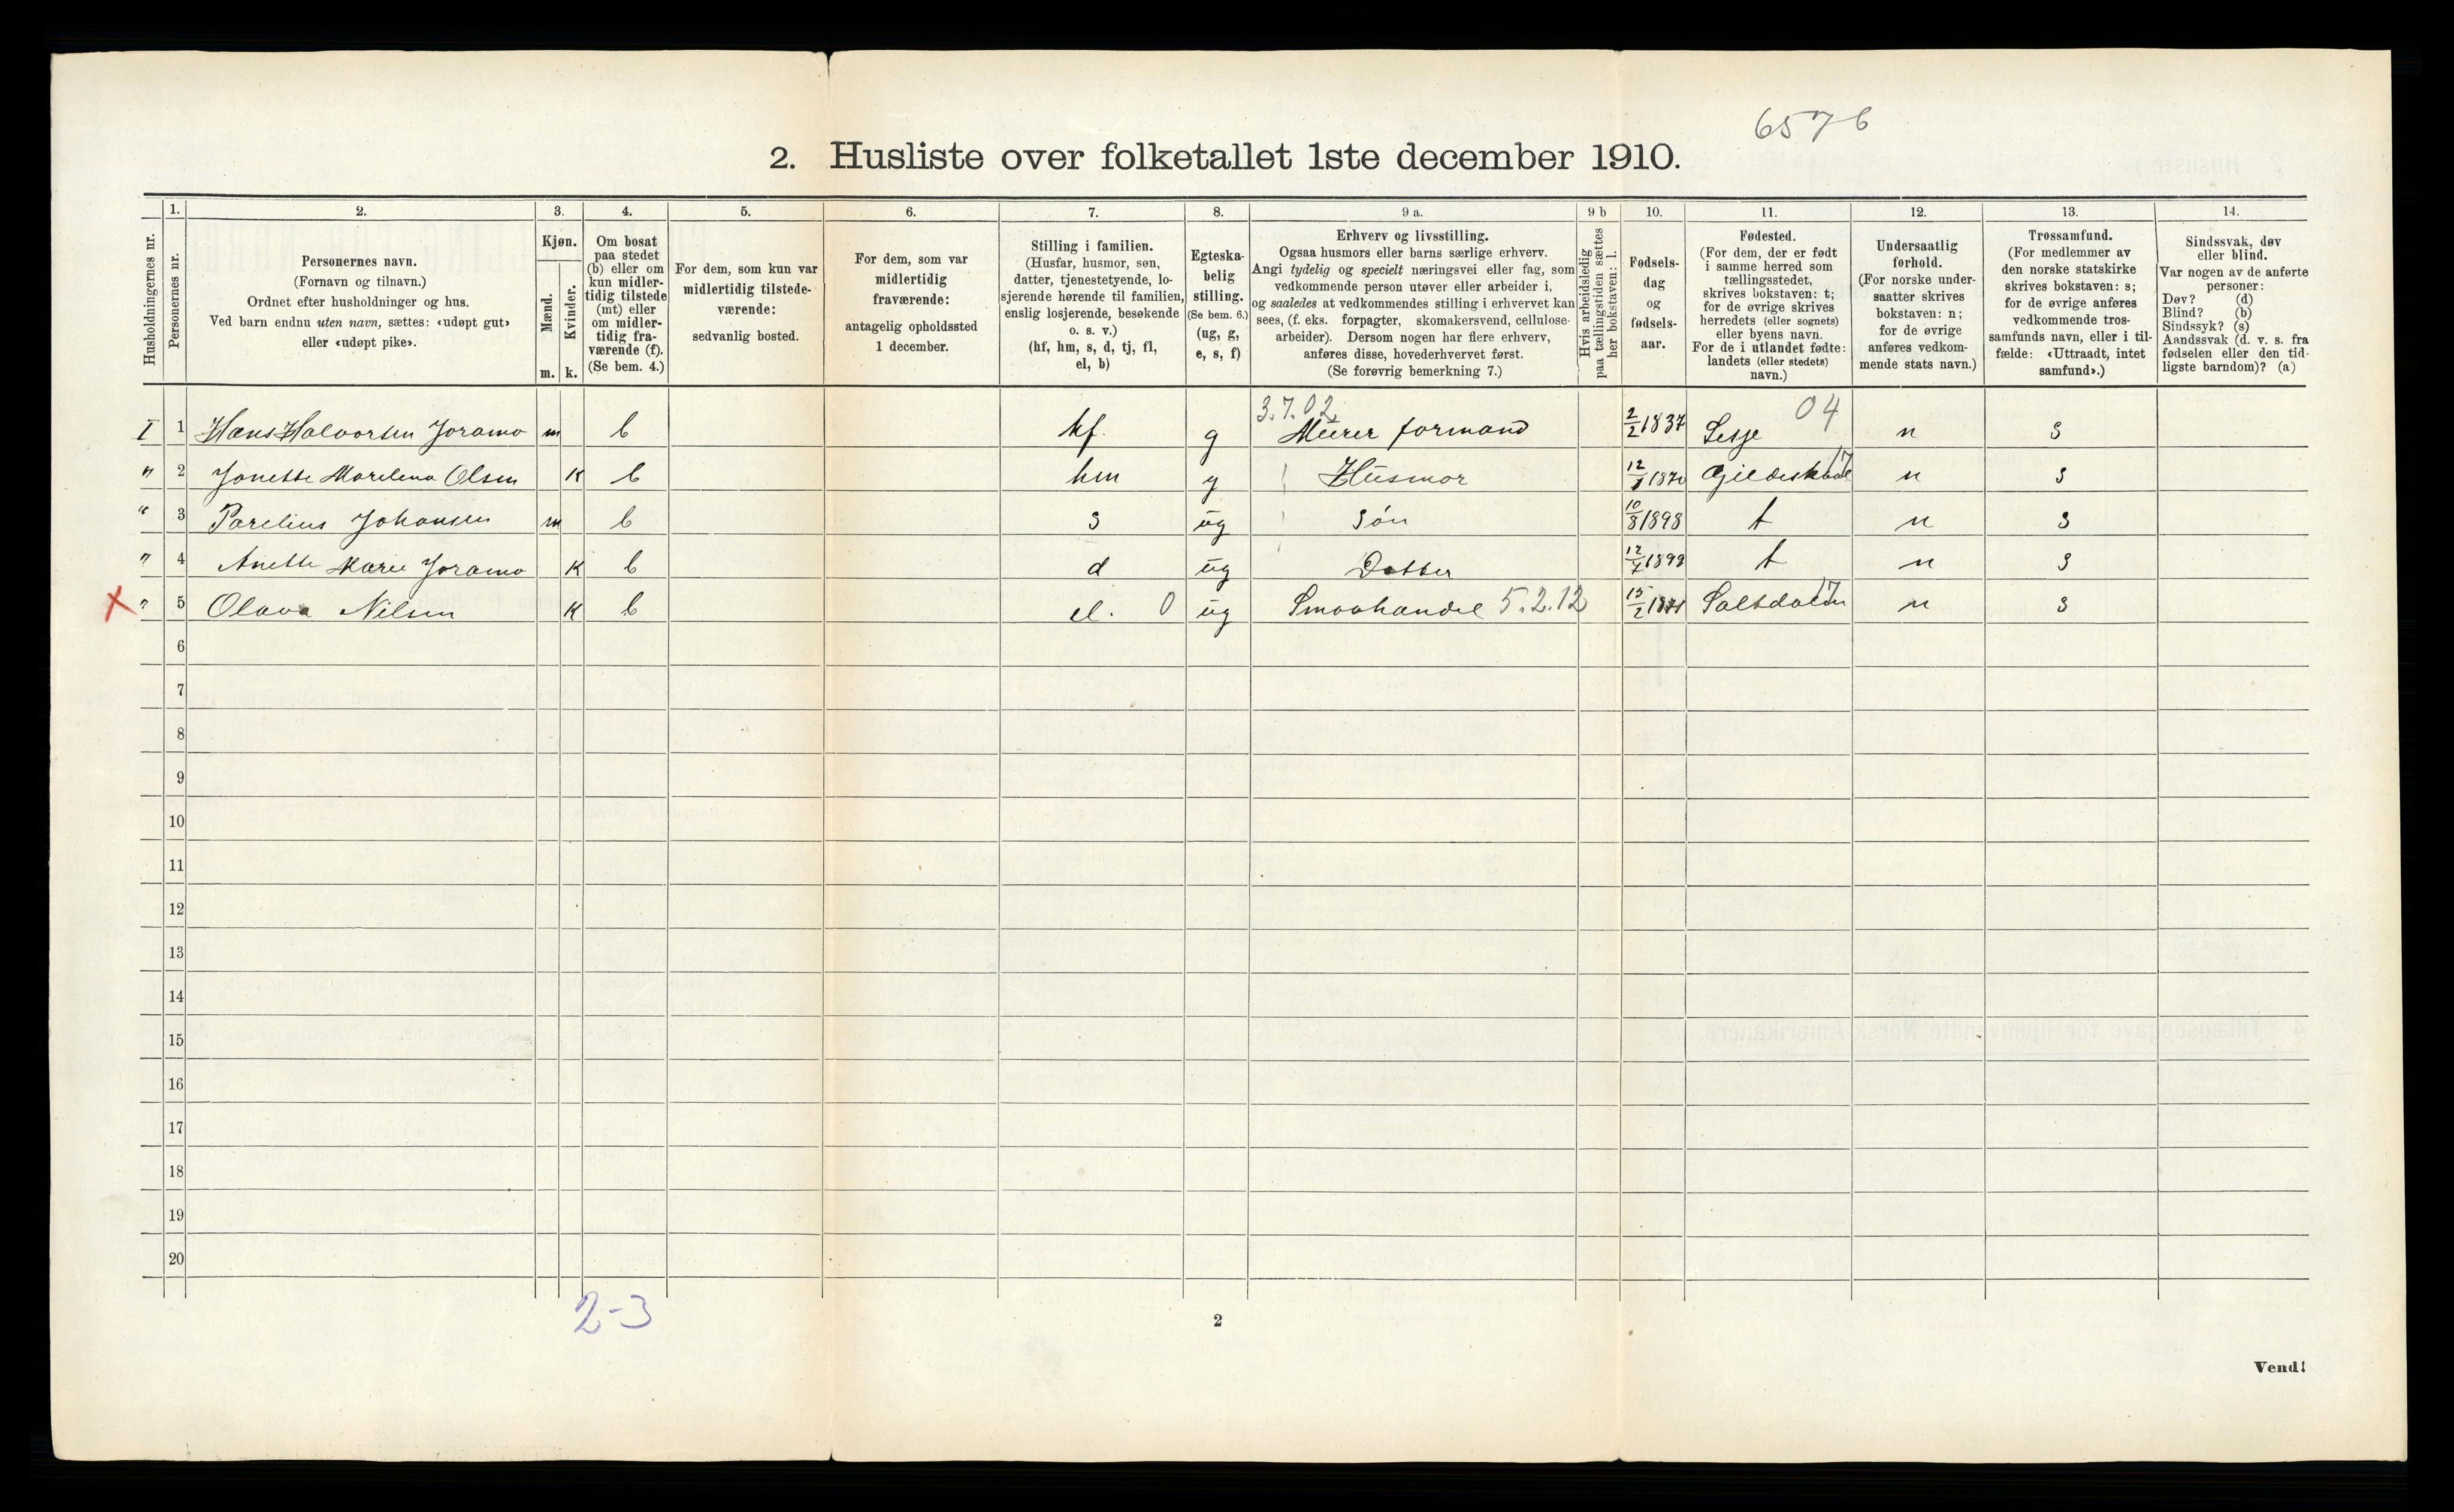 6576
2. Husliste over folketallet 1ste december 1910.
Husholdningernes nr.
1.
Personernes nr.
2.
Personernes navn.
(Fornavn og tilnavn.)
Ordnet efter husholdninger og hus.
Ved barn endnu uten navn, sættes: «udøpt gut»
eller «udøpt pike».
3.
Kjøn.
Mænd.
Kvinder.
m. k.
4.
Om bosat
paa stedet
(b) eller om
kun midler-
tidig tilstede
(mt) eller
om midler-
tidig fra-
værende (f).
(Se bem. 4.)
5.
For dem, som kun var
midlertidig tilstede-
værende:
sedvanlig bosted.
6.
For dem, som var
midlertidig
fraværende:
antagelig opholdssted
1 december.
7.
Stilling i familien.
(Husfar, husmor, søn,
datter, tjenestetyende, lo-
sjerende hørende til familien,
enslig losjerende, besøkende
o. s. v.)
(hf, hm, s, d, tj, fl,
el, b)
8.
Egteska-
belig
stilling.
(Se bem. 6.)
(ug, g,
e, s, f)
9 a.
Erhverv og livsstilling.
Ogsaa husmors eller barns særlige erhverv.
Angi tydelig og specielt næringsvei eller fag, som
vedkommende person utøver eller arbeider i,
og saaledes at vedkommendes stilling i erhvervet kan
sees, (f. eks. forpagter, skomakersvend, cellulose-
arbeider). Dersom nogen har flere erhverv,
anføres disse, hovederhvervet først.
(Se forøvrig bemerkning 7.)
9 b
Hvis arbeidsledig
paa tællingstiden sættes
her bokstaven: l.
10.
Fødsels-
dag
og
fødsels-
aar.
11.
Fødested.
(For dem, der er født
i samme herred som
tællingsstedet,
skrives bokstaven: t;
for de øvrige skrives
herredets (eller sognets)
eller byens navn.
For de i utlandet fødte:
landets (eller stedets)
navn.)
12.
Undersaatlig
forhold.
(For norske under-
saatter skrives
bokstaven: n;
for de øvrige
anføres vedkom-
mende stats navn.)
13.
Trossamfund.
(For medlemmer av
den norske statskirke
skrives bokstaven: s;
for de øvrige anføres
vedkommende tros-
samfunds navn, eller i til-
fælde: «Uttraadt, intet
samfund».)
14.
Sindssvak, døv
eller blind.
Var nogen av de anførte
personer:
Døv? (d)
Blind? (b)
Sindssyk? (s)
Aandssvak (d. v. s. fra
fødselen eller den tid-
ligste barndom)? (a)
3.7.02 04
I 1 Hans Halvorsen Joramo m b hf. g Murer formand 2/2 1837 Lesje n s
" 2 Jonette Marelena Olsen K b hm g Husmor 1870 Gjeldeskaal 17 n s
" 3 Parelius Johansen m b s ug Søn 10/8 1898 t n s
" 4 Anette Marie Joramo K b d ug Datter 1899 t n s
X " 5 Olava Nilsen K b el. 0 ug Smaahandel 5.2.12 15/2 Saltdalen 17 n s
6
7
8
9
10
11
12
13
14
15
16
17
18
19
20
2-3
2
Vend!